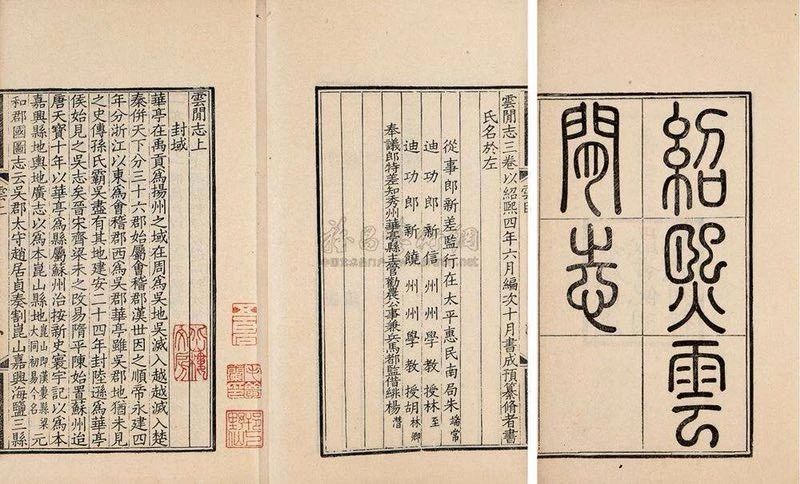 紹熙雲
間志
雲間志三卷以紹熙四年六月編次十月書成預纂脩者書
氏名於左
從事郎新差監行在太平惠民南局朱端常
迪功郎新信州州學教授林至
迪功郎新饒州州學教授胡林卿
奉議郎特差知秀州華亭縣主管勸農公事兼兵馬都監借緋楊潛
雲間志上
封域
華亭在禹貢為揚州之域在周為吳地吳滅入越越滅入楚
秦併天下分三十六郡始屬會稽郡漢世因之順帝永建四
年分浙江以東為會稽郡西為吳郡華亭雖吳郡地猶未見
之史傳孫氏霸吳盡有其地建安二十四年封陸遜為華亭
侯始見之吳志矣晉宋齊梁未之改易隋平陳始置蘇州迨
唐天寶十年以華亭為縣屬蘇州治按新史寰宇記以為本
嘉興縣地輿地廣志以為本崑山縣地崑山即漢婁縣梁大同初易今名元
和郡國圖志云吳郡太守趙居貞奏割崑山嘉興海鹽三縣